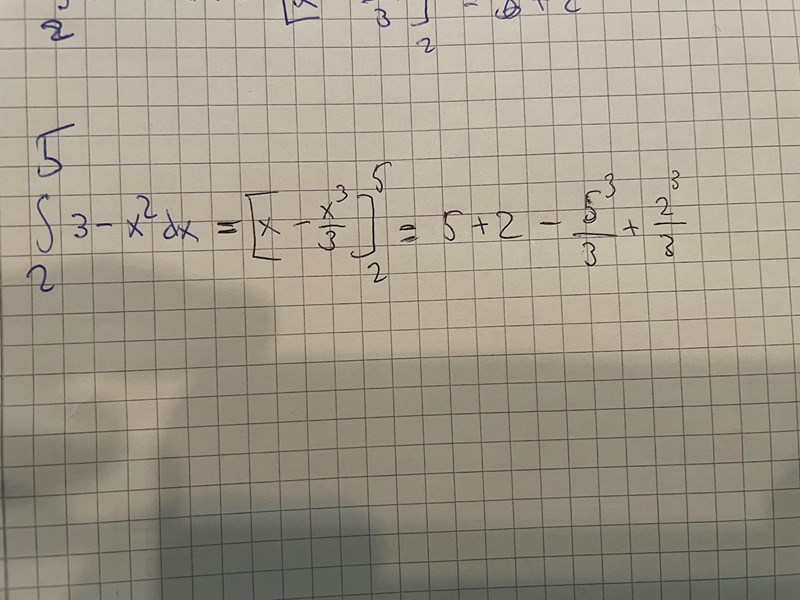 2 [x 3]₂ = + 2
∫₂⁵ 3 - x² dx = [x - x³/3]₂⁵ = 5 + 2 - 5³/3 + 2³/3